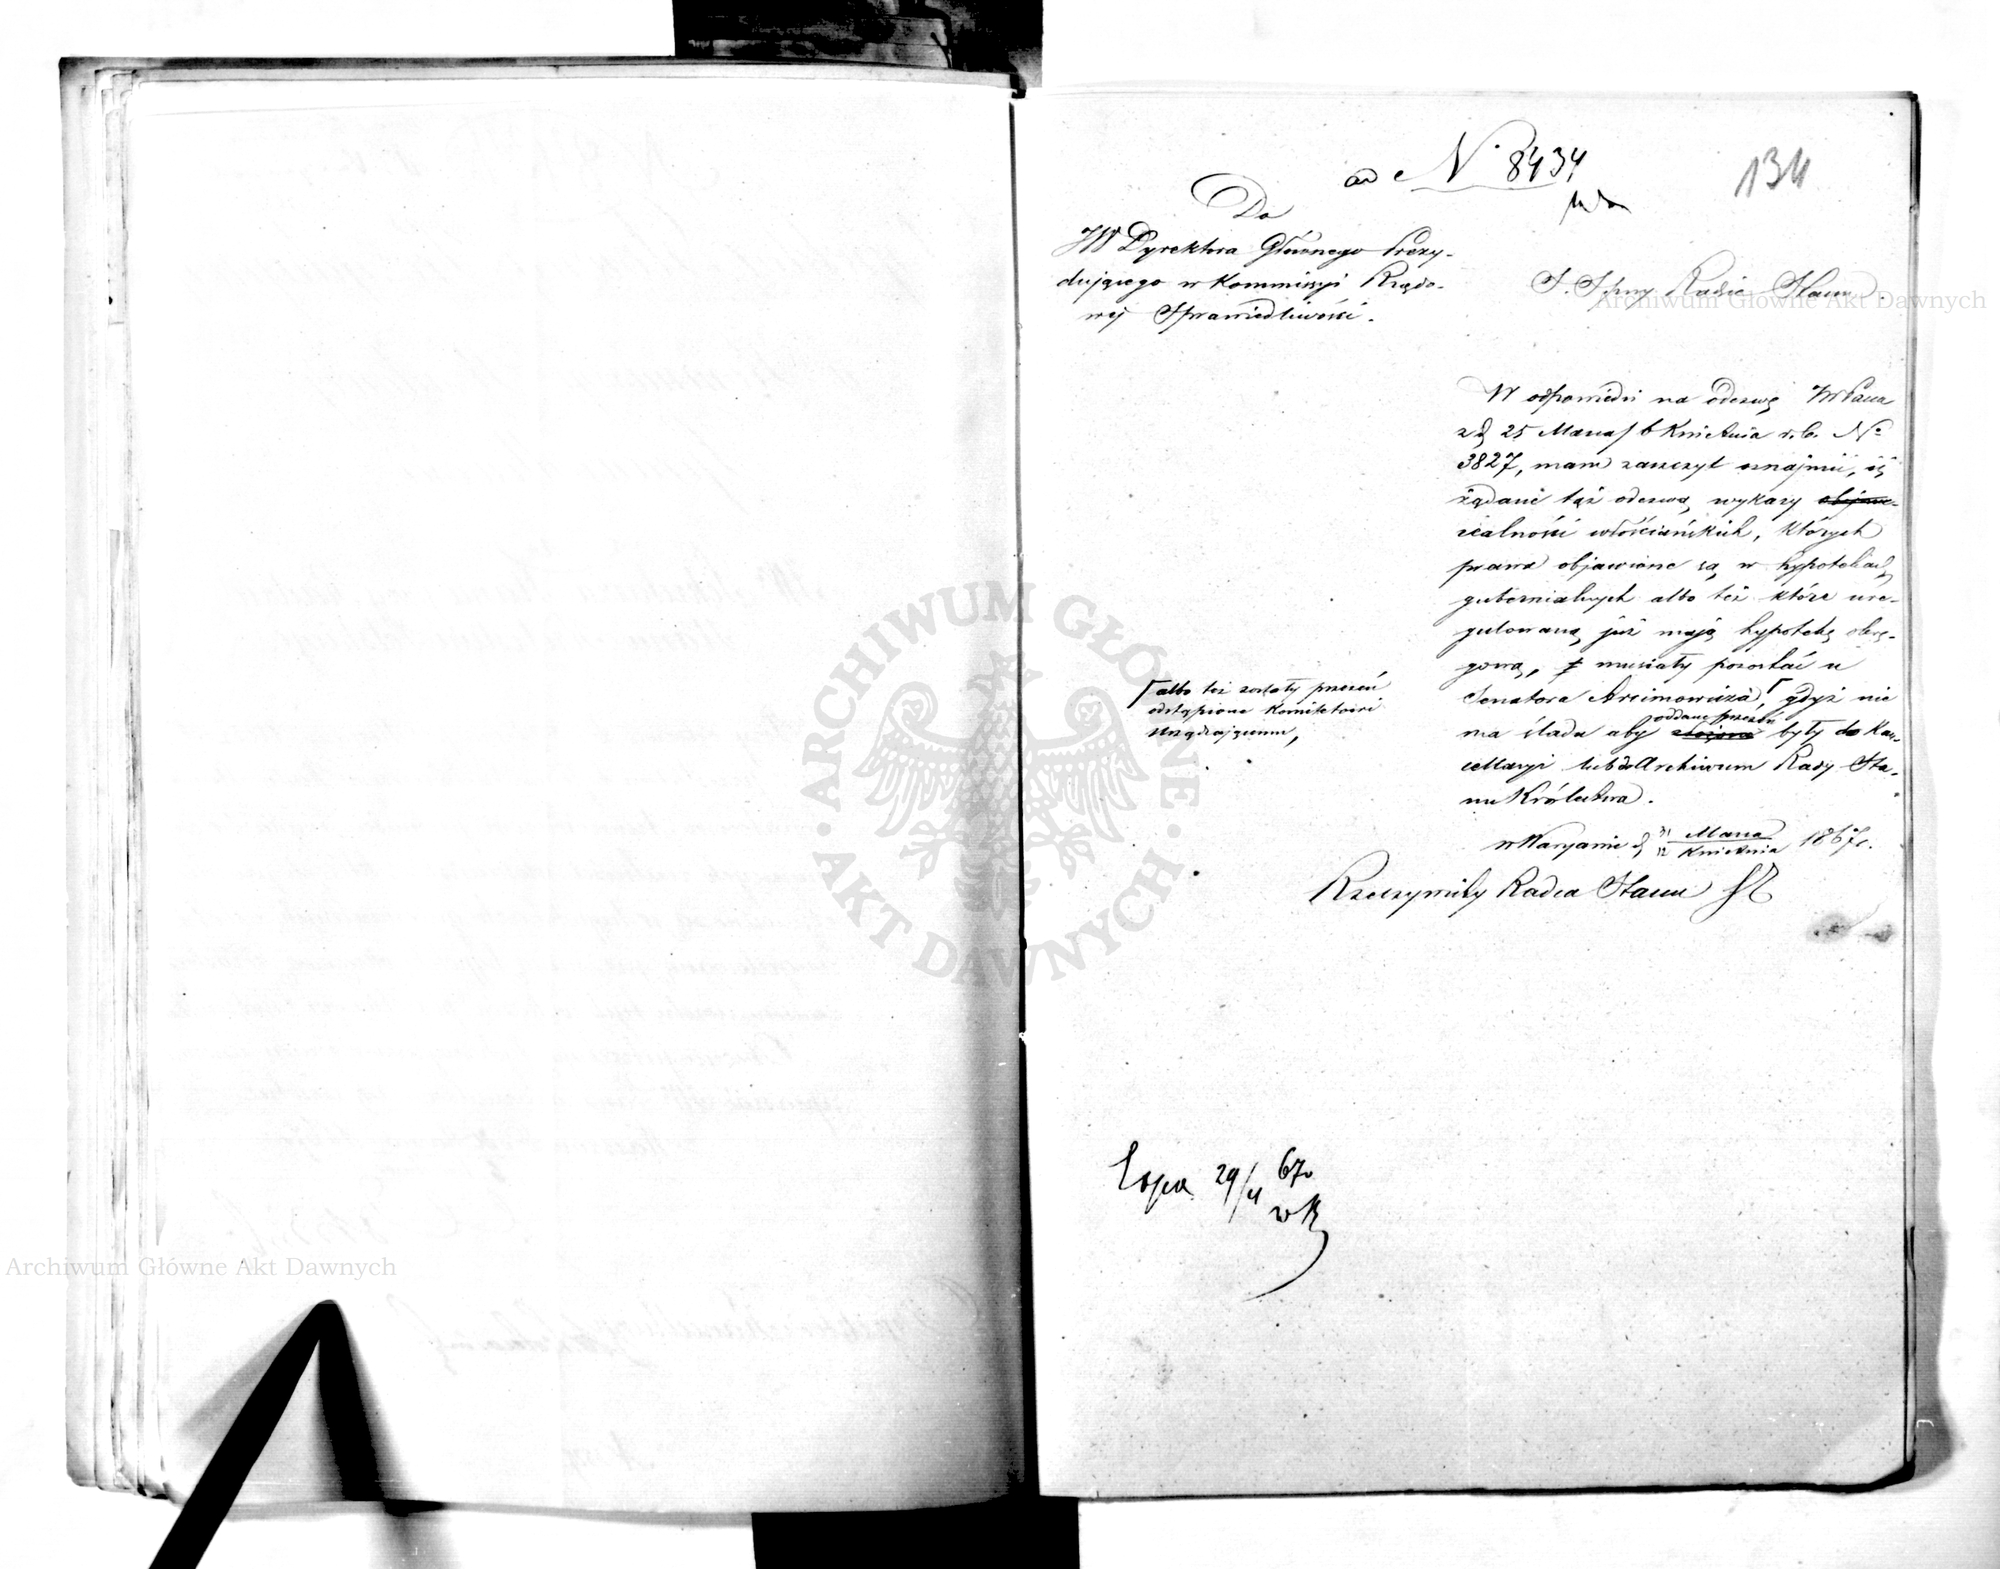 ad N. 8434
134
Do
JW Dyrektora Głównego Prezy-
dującego w Kommissyi Rządo-
wej Sprawiedliwości.
Radzie Stanu
W odpowiedzi na odezwę JWPana
z d. 25 Marca/6 Kwietnia r. b. No
3827, mam zaszczyt oznajmić, iż
żądane tąż odezwą wykazy objawi-
realności włościańskich, których
prawa objawione są w hypotekach
gubernialnych albo też które ure-
gulowaną już mają hypotekę okrę-
gową, musiały pozostać u
Senatora Arcimowicza, gdyż nie
albo też zostały przezeń
odstąpione Komitetowi
Urządzającemu,
oddane przezeń
ma śladu aby złożone były do Kan-
cellaryi lub do Archiwum Rady Sta-
nu Królestwa.
w Warszawie d. 31 Marca / 12 Kwietnia 1867 r.
Rzeczywisty Radca Stanu
29/4 67
Archiwum Główne Akt Dawnych
Archiwum Główne Akt Dawnych
ARCHIWUM GŁÓWNE
AKT DAWNYCH